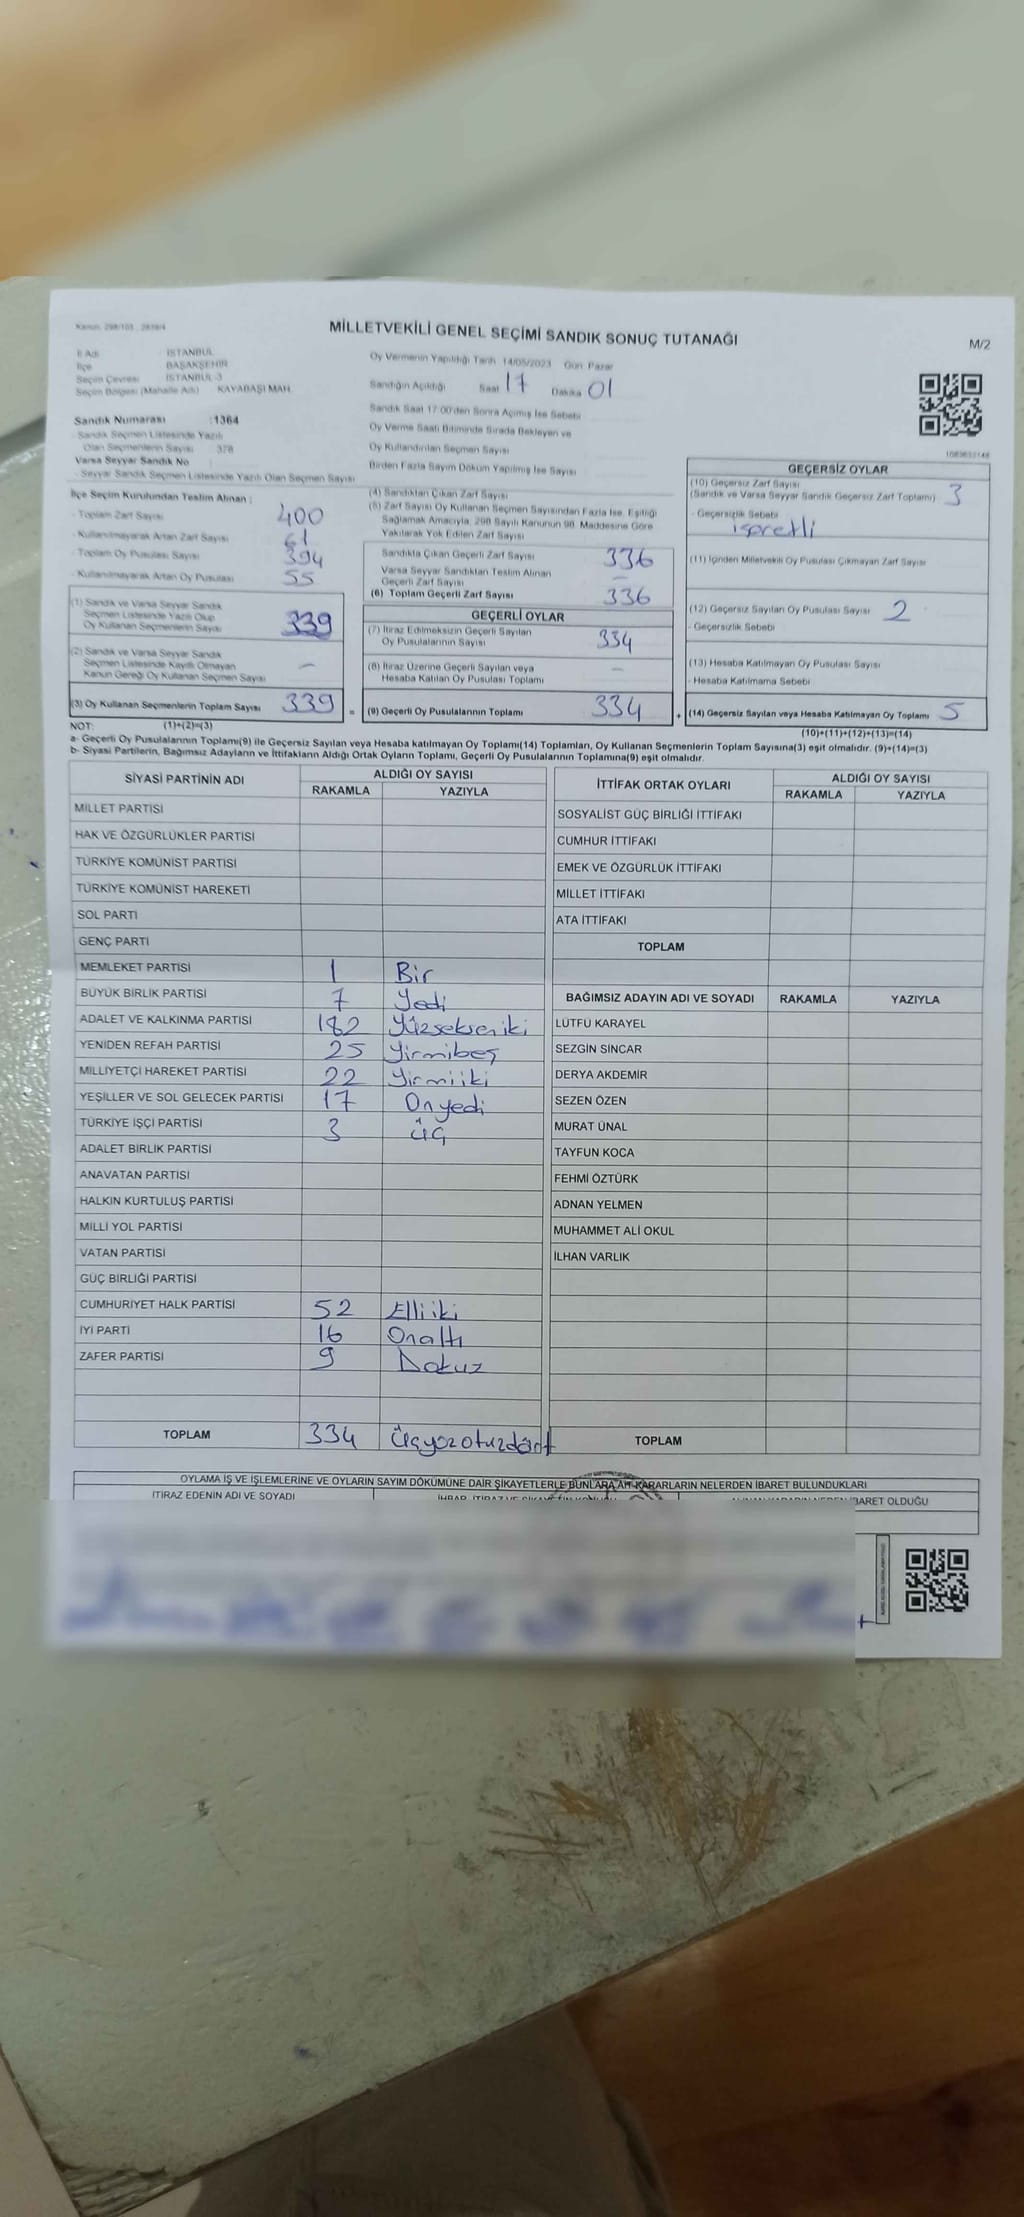 Kanun: 298/105, 2839/4
MİLLETVEKİLİ GENEL SEÇİMİ SANDIK SONUÇ TUTANAĞI
M/2
İl Adı : İSTANBUL
İlçe : BAŞAKŞEHİR
Seçim Çevresi : İSTANBUL-3
Seçim Bölgesi (Mahalle Adı) : KAYABAŞI MAH.
Sandık Numarası :1364
- Sandık Seçmen Listesinde Yazılı
Olan Seçmenlerin Sayısı : 378
Varsa Seyyar Sandık No
- Seyyar Sandık Seçmen Listesinde Yazılı Olan Seçmen Sayısı
Oy Vermenin Yapıldığı Tarih 14/05/2023 Gün: Pazar
Sandığın Açıldığı Saat 17 Dakika 01
Sandık Saat 17:00'den Sonra Açılmış İse Sebebi
Oy Verme Saati Bitiminde Sırada Bekleyen ve
Oy Kullandırılan Seçmen Sayısı
Birden Fazla Sayım Döküm Yapılmış İse Sayısı
İlçe Seçim Kurulundan Teslim Alınan :
- Toplam Zarf Sayısı 400
- Kullanılmayarak Artan Zarf Sayısı 61
- Toplam Oy Pusulası Sayısı 394
- Kullanılmayarak Artan Oy Pusulası 55
(1) Sandık ve Varsa Seyyar Sandık
Seçmen Listesinde Yazılı Olup
Oy Kullanan Seçmenlerin Sayısı 339
(2) Sandık ve Varsa Seyyar Sandık
Seçmen Listesinde Kayıtlı Olmayan
Kanun Gereği Oy Kullanan Seçmen Sayısı -
(3) Oy Kullanan Seçmenlerin Toplam Sayısı 339 =
(4) Sandıktan Çıkan Zarf Sayısı
(5) Zarf Sayısı Oy Kullanan Seçmen Sayısından Fazla İse, Eşitliği
Sağlamak Amacıyla, 298 Sayılı Kanunun 98. Maddesine Göre
Yakılarak Yok Edilen Zarf Sayısı
Sandıkta Çıkan Geçerli Zarf Sayısı 336
Varsa Seyyar Sandıktan Teslim Alınan
Geçerli Zarf Sayısı -
(6) Toplam Geçerli Zarf Sayısı 336
GEÇERLİ OYLAR
(7) İtiraz Edilmeksizin Geçerli Sayılan
Oy Pusulalarının Sayısı 334
(8) İtiraz Üzerine Geçerli Sayılan veya
Hesaba Katılan Oy Pusulası Toplamı -
(9) Geçerli Oy Pusulalarının Toplamı 334 +
GEÇERSİZ OYLAR
(10) Geçersiz Zarf Sayısı
(Sandık ve Varsa Seyyar Sandık Geçersiz Zarf Toplamı) 3
- Geçersizlik Sebebi
işaretli
(11) İçinden Milletvekili Oy Pusulası Çıkmayan Zarf Sayısı
(12) Geçersiz Sayılan Oy Pusulası Sayısı 2
- Geçersizlik Sebebi
(13) Hesaba Katılmayan Oy Pusulası Sayısı
- Hesaba Katılmama Sebebi
(14) Geçersiz Sayılan veya Hesaba Katılmayan Oy Toplamı 5
NOT: (1)+(2)=(3) (10)+(11)+(12)+(13)=(14)
a- Geçerli Oy Pusulalarının Toplamı(9) ile Geçersiz Sayılan veya Hesaba katılmayan Oy Toplamı(14) Toplamları, Oy Kullanan Seçmenlerin Toplam Sayısına(3) eşit olmalıdır. (9)+(14)=(3)
b- Siyasi Partilerin, Bağımsız Adayların ve İttifakların Aldığı Ortak Oyların Toplamı, Geçerli Oy Pusulalarının Toplamına(9) eşit olmalıdır.
SİYASİ PARTİNİN ADI ALDIĞI OY SAYISI
RAKAMLA YAZIYLA
MİLLET PARTİSİ
HAK VE ÖZGÜRLÜKLER PARTİSİ
TÜRKİYE KOMÜNİST PARTİSİ
TÜRKİYE KOMÜNİST HAREKETİ
SOL PARTİ
GENÇ PARTİ
MEMLEKET PARTİSİ 1 Bir
BÜYÜK BİRLİK PARTİSİ 7 Yedi
ADALET VE KALKINMA PARTİSİ 182 Yüzsekseniki
YENİDEN REFAH PARTİSİ 25 Yirmibeş
MİLLİYETÇİ HAREKET PARTİSİ 22 Yirmiiki
YEŞİLLER VE SOL GELECEK PARTİSİ 17 Onyedi
TÜRKİYE İŞÇİ PARTİSİ 3 üç
ADALET BİRLİK PARTİSİ
ANAVATAN PARTİSİ
HALKIN KURTULUŞ PARTİSİ
MİLLİ YOL PARTİSİ
VATAN PARTİSİ
GÜÇ BİRLİĞİ PARTİSİ
CUMHURİYET HALK PARTİSİ 52 Elliiki
İYİ PARTİ 16 Onaltı
ZAFER PARTİSİ 9 Dokuz
TOPLAM 334 Üçyüzotuzdört
İTTİFAK ORTAK OYLARI ALDIĞI OY SAYISI
RAKAMLA YAZIYLA
SOSYALİST GÜÇ BİRLİĞİ İTTİFAKI
CUMHUR İTTİFAKI
EMEK VE ÖZGÜRLÜK İTTİFAKI
MİLLET İTTİFAKI
ATA İTTİFAKI
TOPLAM
BAĞIMSIZ ADAYIN ADI VE SOYADI RAKAMLA YAZIYLA
LÜTFÜ KARAYEL
SEZGİN SİNCAR
DERYA AKDEMİR
SEZEN ÖZEN
MURAT ÜNAL
TAYFUN KOCA
FEHMİ ÖZTÜRK
ADNAN YELMEN
MUHAMMET ALİ OKUL
İLHAN VARLIK
TOPLAM
OYLAMA İŞ VE İŞLEMLERİNE VE OYLARIN SAYIM DÖKÜMÜNE DAİR ŞİKAYETLERLE BUNLARA AİT KARARLARIN NELERDEN İBARET BULUNDUKLARI
İTİRAZ EDENİN ADI VE SOYADI
İBARET OLDUĞU